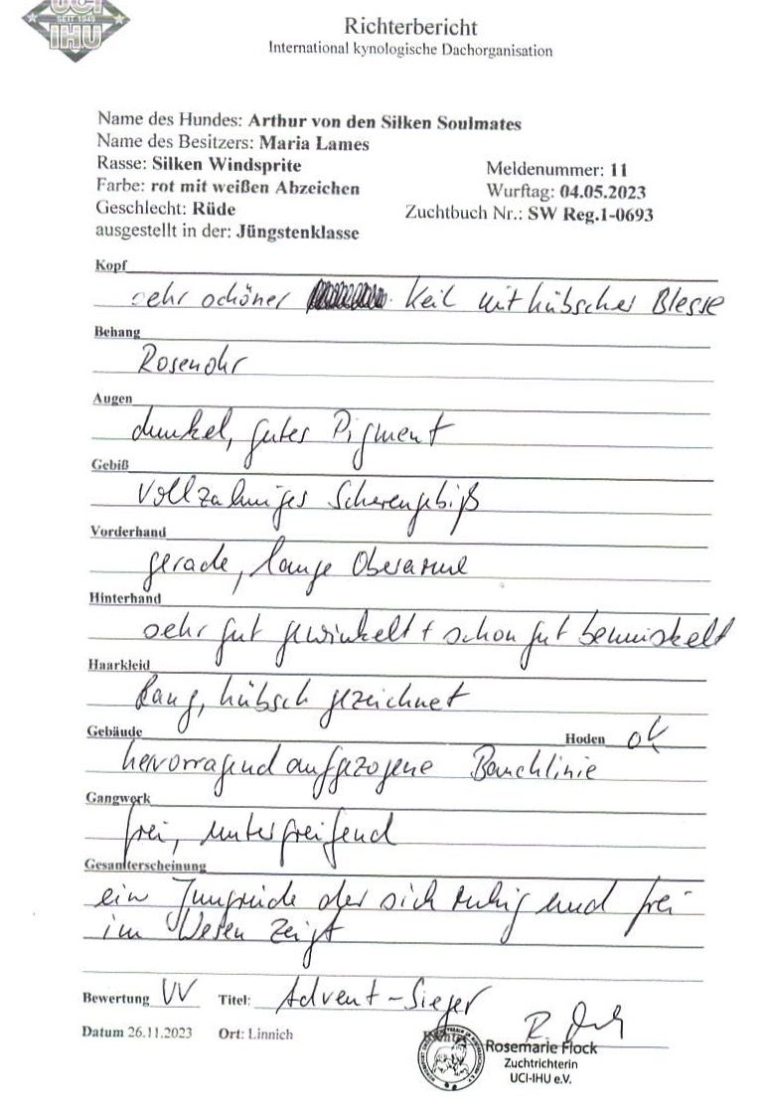 UCI
SEIT 1949
IHU
Richterbericht
International kynologische Dachorganisation
Name des Hundes: Arthur von den Silken Soulmates
Name des Besitzers: Maria Lames
Rasse: Silken Windsprite Meldenummer: 11
Farbe: rot mit weißen Abzeichen Wurftag: 04.05.2023
Geschlecht: Rüde Zuchtbuch Nr.: SW Reg.1-0693
ausgestellt in der: Jüngstenklasse
Kopf
sehr schöner Keil mit hübscher Blesse
Behang
Rosenohr
Augen
dunkel, gutes Pigment
Gebiß
vollzahniges Scherengebiß
Vorderhand
gerade, lange Oberarme
Hinterhand
sehr gut gewinkelt + schon gut bemuskelt
Haarkleid
lang, hübsch gezeichnet
Gebäude Hoden ok
hervorragend aufgezogene Bauchlinie
Gangwerk
frei, untergreifend
Gesamterscheinung
ein Jungrüde der sich ruhig und frei
im Wesen zeigt
Bewertung VV Titel: Advent-Sieger
Datum 26.11.2023 Ort: Linnich
Rosemarie Flock
Zuchtrichterin
UCI-IHU e.V.